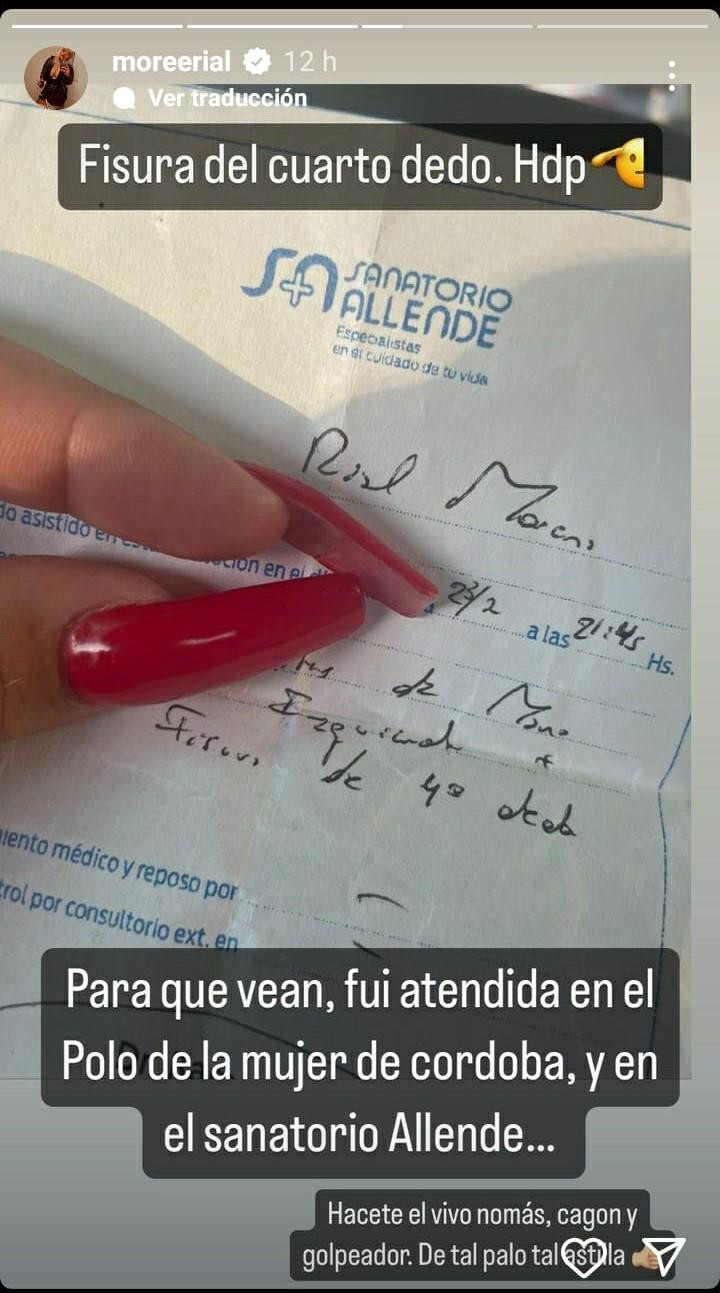 moreerial 12 h
Ver traducción
Fisura del cuarto dedo. Hdp
SANATORIO
ALLENDE
Especialistas
en el cuidado de tu vida
Rial Morena
do asistido en
ción en el
a 23/2 a las 21:45 Hs.
de Mano
Izquierda +
Fisura de 4º dedo
iento médico y reposo por
trol por consultorio ext. en
Para que vean, fui atendida en el
Polo de la mujer de cordoba, y en
el sanatorio Allende...
Hacete el vivo nomás, cagon y
golpeador. De tal palo tal astilla